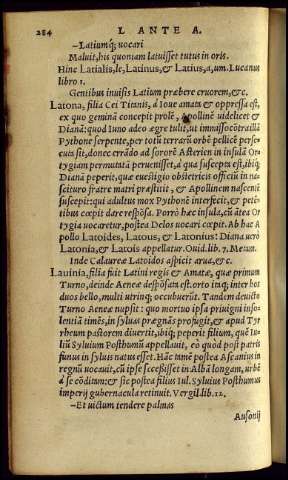 284 L ANTE A.
–Latiumq; uocari
Maluit, his quoniam latuisset tutus in oris.
Hinc Latialis, le, Latinus, & Latius, a, um. Lucanus
libro.1.
Gentibus inuisis Latium præbere cruorem, &c.
Latona, filia Cei Titanis, à Ioue amata & oppressa est,
ex quo geminā concepit prolē, Apollinē uidelicet &
Dianā: quod Iuno adeo ægre tulit, ut immisso cōtra illā
Pythone serpente, per totū terrarū orbē pellicē perse
cuta sit, donec errādo ad sororē Asterien in insulā Or
tygiam permutatā peruenisset, à qua suscepta est, ibiq;
Dianā peperit, quæ euestigio obstetricis officiū in na-
scituro fratre matri præstitit, & Apollinem nascenté
suscepit: qui adultus mox Pythonē interfecit, & peti-
tibus cœpit dare respōsa. Porrò hæc insula, cū ātea Or
tygia uocaretur, postea Delos uocari cœpit. Ab hac A
pollo Latoides, Latous, & Latonius: Diana uerò
Latonia, & Latois appellatur. Ouid. lib. 7. Metam.
Inde Calaureæ Latoidos aspicit arua, &c.
Lauinia, filia fuit Latini regis & Amatæ, quæ primum
Turno, deinde Aeneæ despōsata est. orto inq; inter hos
duos bello, multi utrinq; occubuerūt. Tandem deuicto
Turno Aeneæ nupsit: quo mortuo ipsa priuigni inso-
lentiā timēs, in syluas prægnās profugit, & apud Tyr
rheum pastorem diuertit, ibiq; peperit filium, quē Iu-
liū Syluium Posthumū appellauit, eò quòd post patris
funus in syluis natus esset. Hāc tamē postea Ascanius in
regnū uocauit, cū ipse secessisset in Albā longam, urbē
à se cōditam: & sic postea filius Iul. Syluius Posthumus
imperij gubernacula retinuit. Vergil. lib. 12.
–Et uictum tendere palmas
Ausonij